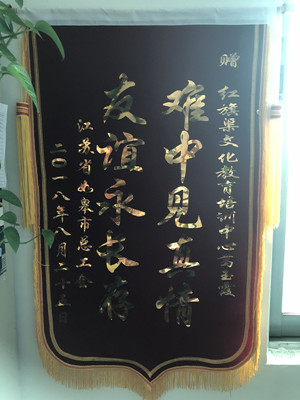 赠
红旗渠文化教育培训中心高玉霞
难中见真情
友谊永长存
江苏省如皋市总工会
二〇一八年八月二十五日